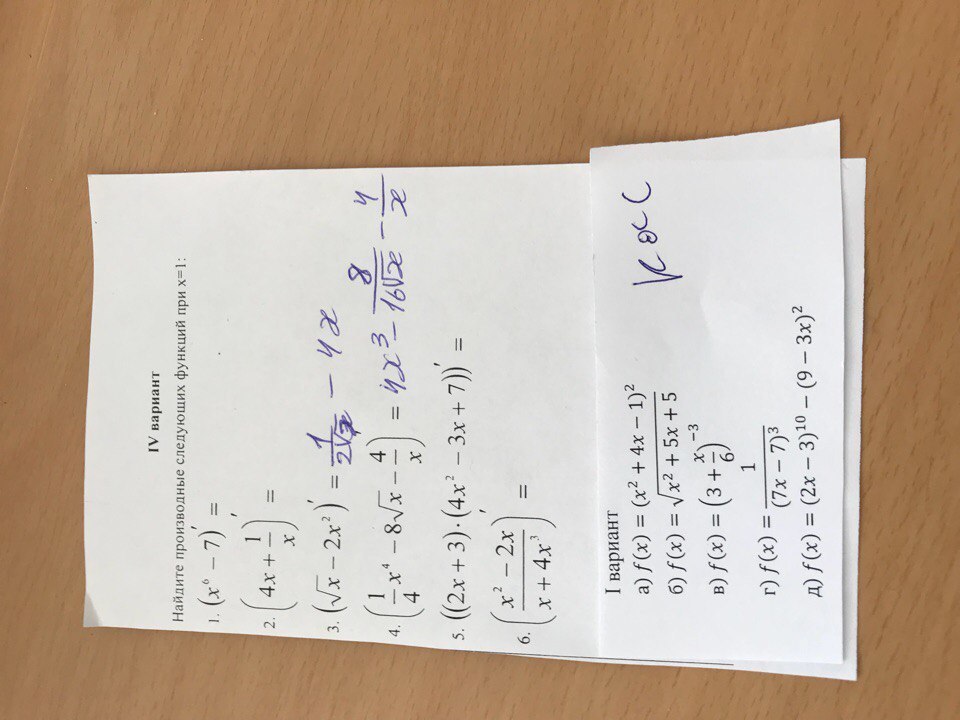 IV вариант
Найдите производные следующих функций при x=1:
1. (x⁶ − 7)′ =
2. (4x + 1/x)′ =
3. (√x − 2x²)′ = 1/(2√x) − 4x
4. (1/4 x⁴ − 8√x − 4/x)′ = 4x³ − 8/(16√x) − 4/x
5. ((2x + 3)·(4x² − 3x + 7))′ =
6. ((x² − 2x)/(x + 4x³))′ =
I вариант
а) f(x) = (x² + 4x − 1)²
б) f(x) = √(x² + 5x + 5)
в) f(x) = (3 + x/6)⁻³
г) f(x) = 1/(7x − 7)³
д) f(x) = (2x − 3)¹⁰ − (9 − 3x)²